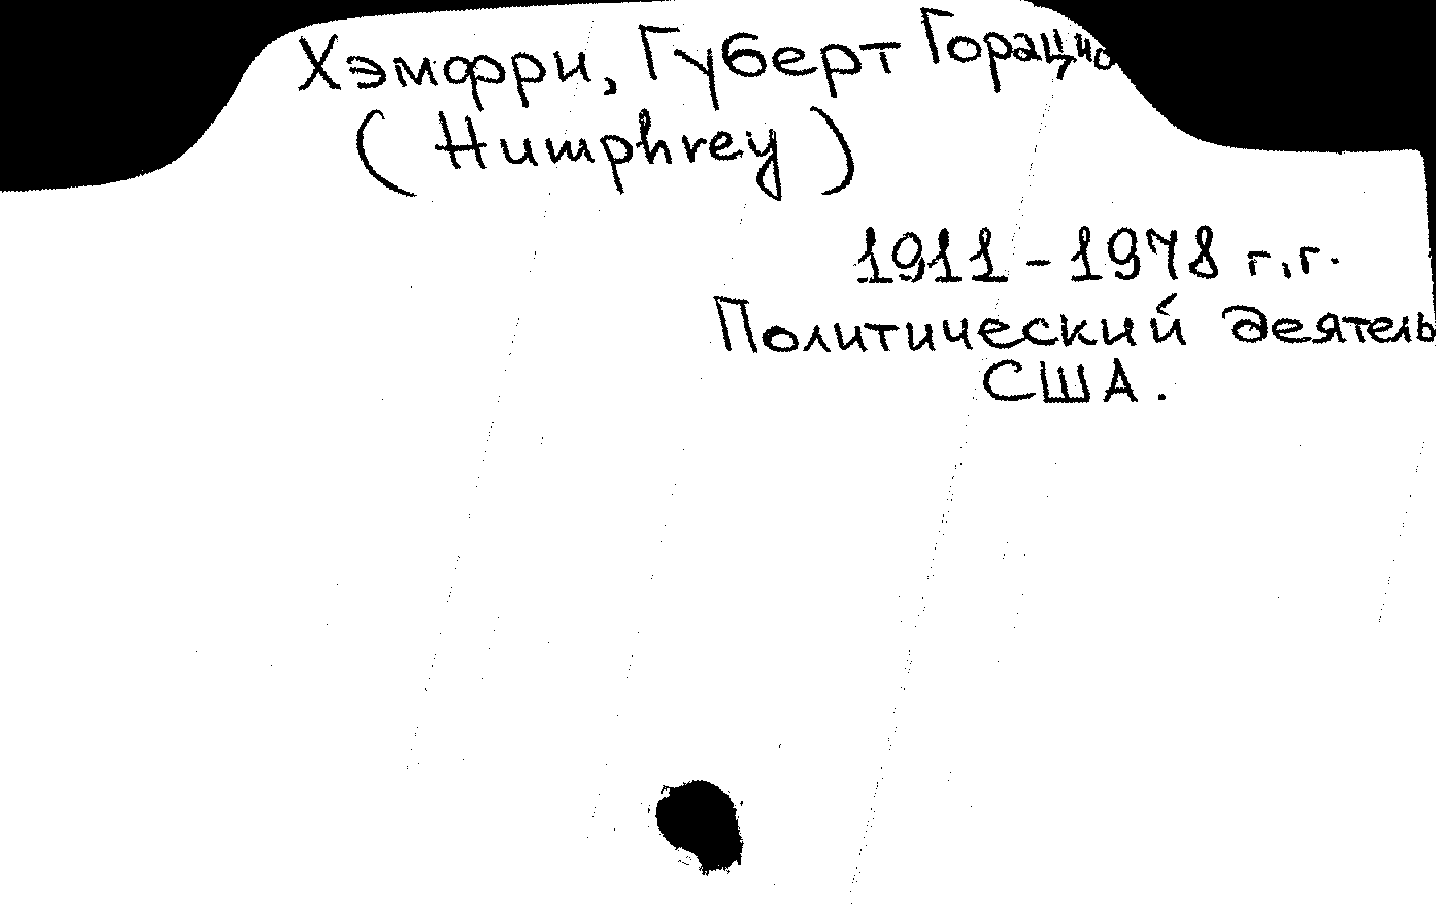 Хэмфри, Губерт Горацио
(Humphrey)
1911-1978 г.г.
Политический деятель
США.